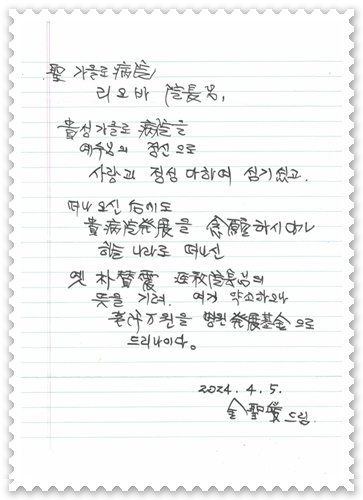 聖 가를로 病院
리오바 院長님,
貴 성가를로 病院을
예수님의 정신으로
사랑과 정성 다하여 섬기셨고.
떠나 오신 后에도
貴 病院 発展을 念願하시다가
하늘 나라로 떠나신
옛 朴賛震 院長님의
뜻을 기려. 여기 약소하오나
万 원을 병원 発展基金으로
드리나이다。
2024. 4. 5.
金聖 드림.